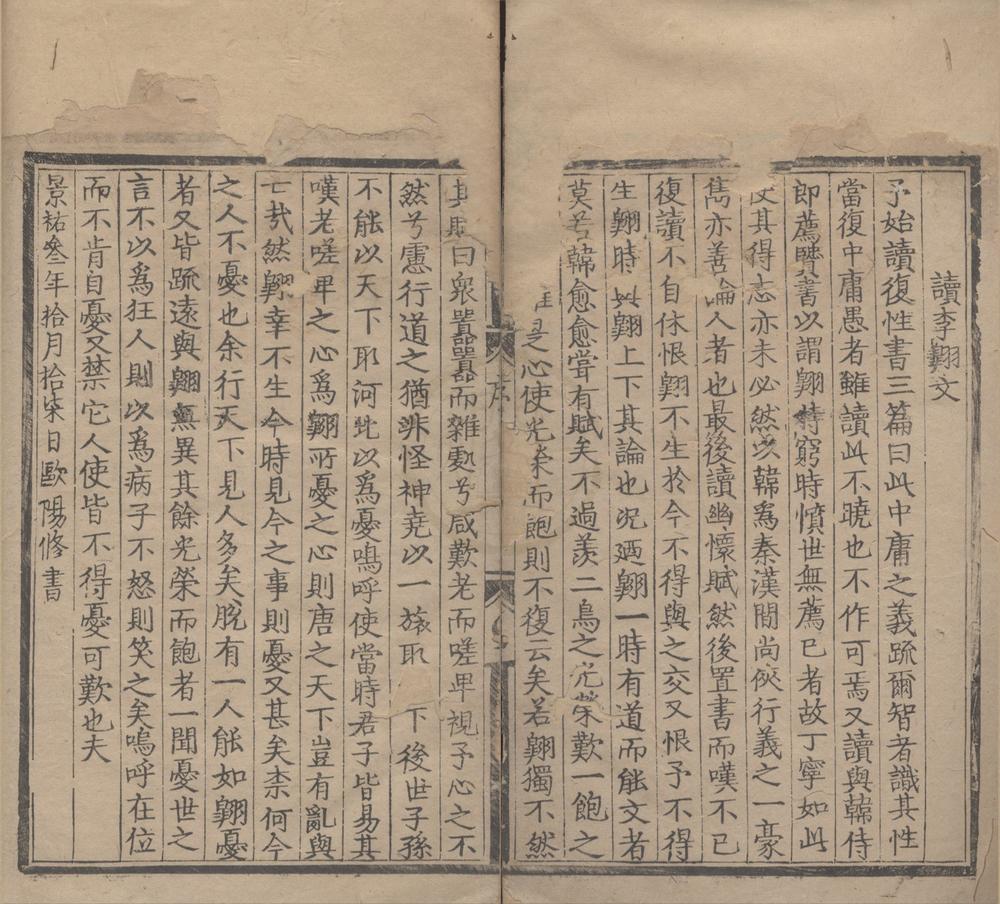 讀李翱文
予始讀復性書三篇曰此中庸之義疏爾智者識其性
當復中庸愚者雖讀此不曉也不作可焉又讀與韓侍
郎薦賢書以謂翱特窮時憤世無薦已者故丁寧如此
使其得志亦未必然以韓為秦漢間尚俠行義之一豪
雋亦善論人者也最後讀幽懷賦然後置書而嘆不已
復讀不自休恨翱不生於今不得與之交又恨予不得
生翱時與翱上下其論也况廼翱一時有道而能文者
莫兮韓愈愈嘗有賦矣不過羨二鳥之光榮歎一飽之
是心使光榮而飽則不復云矣若翱獨不然
其賦曰衆囂囂而雜處兮咸歎老而嗟卑視予心之不
然兮慮行道之猶非怪神堯以一旅取 下後世子孫
不能以天下取河北以為憂嗚呼使當時君子皆易其
嘆老嗟卑之心爲翱所憂之心則唐之天下豈有亂與
亡㢤然翱幸不生今時見今之事則憂又甚矣柰何今
之人不憂也余行天下見人多矣脫有一人能如翱憂
者又皆疏遠與翱無異其餘光榮而飽者一聞憂世之
言不以爲狂人則以爲病子不怒則笑之矣嗚呼在位
而不肯自憂又禁它人使皆不得憂可歎也夫
景祐叄年拾月拾柒日歐陽修書